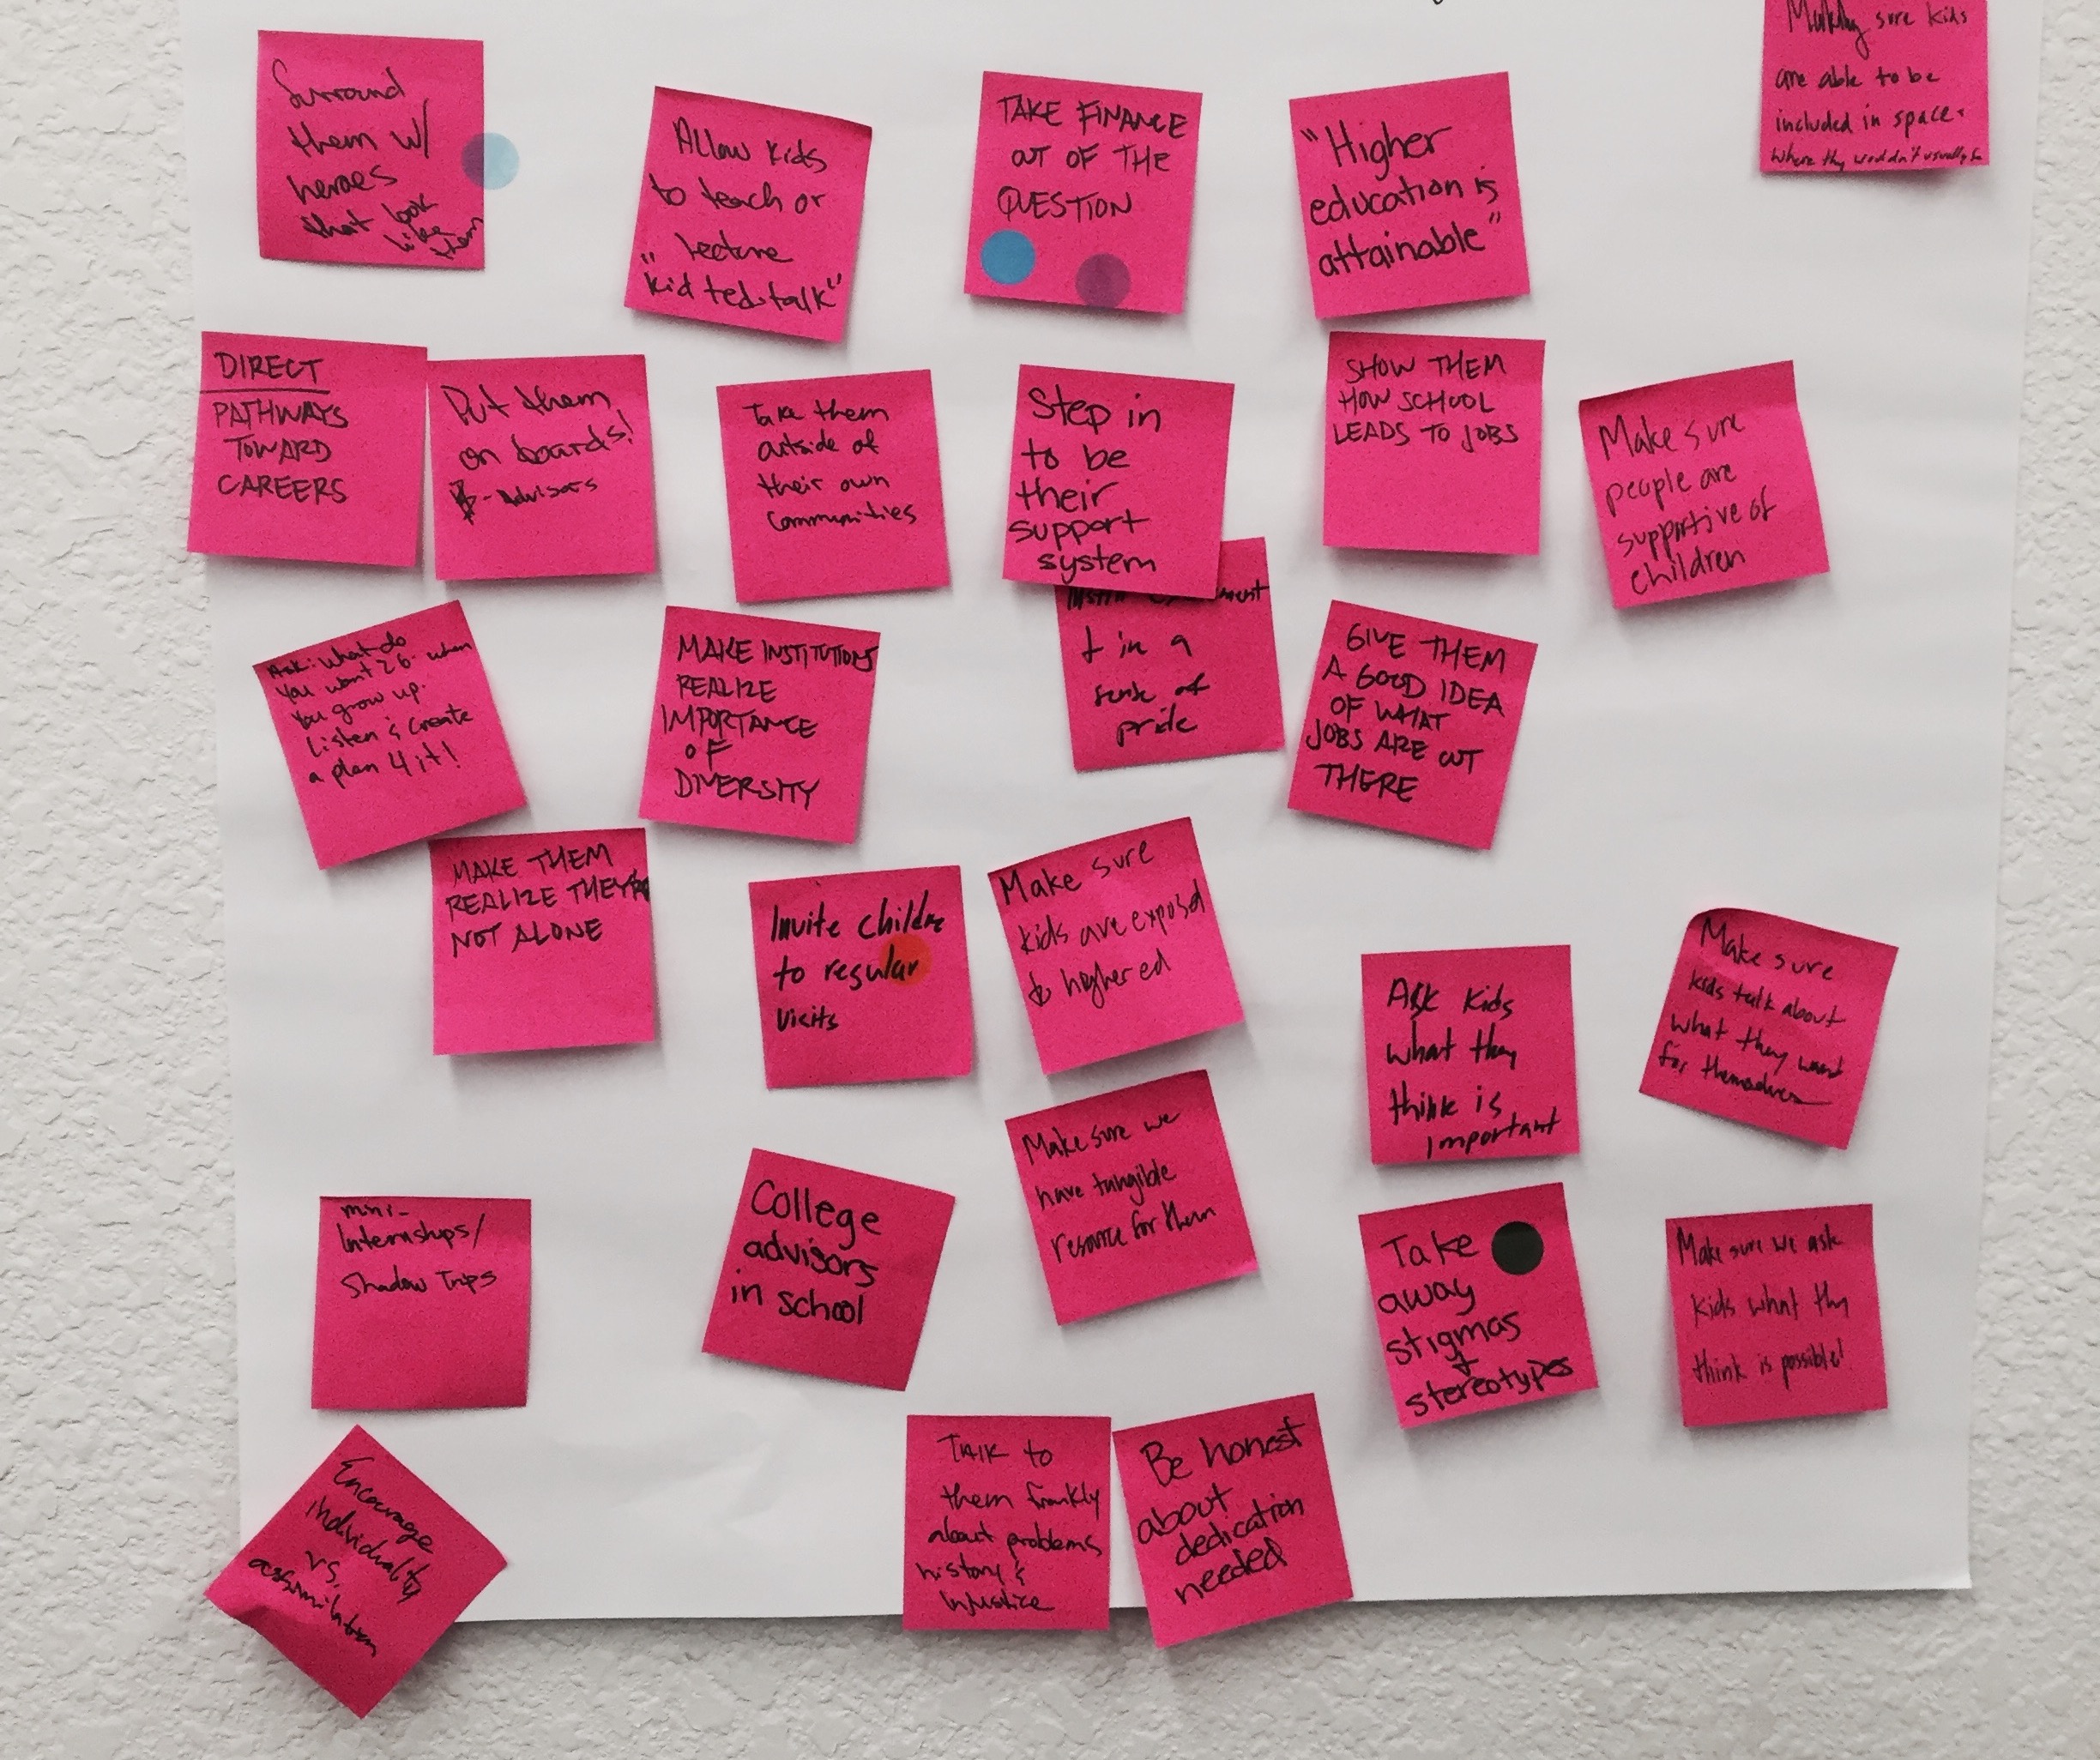 Surround
them w/
heroes
that look
like
them
Allow kids
to teach or
lecture
"kid ted-talk"
TAKE FINANCE
OUT OF THE
QUESTION
"Higher
education is
attainable"
Making sure kids
are able to be
included in spaces
where they wouldn't usually be
DIRECT
PATHWAYS
TOWARD
CAREERS
Put them
on boards!
- Advisors
Take them
outside of
their own
communities
Step in
to be
their
support
system
SHOW THEM
HOW SCHOOL
LEADS TO JOBS
Make sure
people are
supportive of
children
Ask: What do
you want 2 b when
you grow up.
Listen & create
a plan 4 it!
MAKE INSTITUTIONS
REALIZE
IMPORTANCE
OF
DIVERSITY
in a
sense of
pride
GIVE THEM
A GOOD IDEA
OF WHAT
JOBS ARE OUT
THERE
MAKE THEM
REALIZE THEY'RE
NOT ALONE
Invite childre
to regular
visits
Make sure
kids are exposed
to hogher ed
Ask kids
what they
think is
important
Make sure
kids talk about
what they want
for themselves
mini-
Internships/
Shadow Trips
College
advisors
in school
Make sure we
have tangible
resource for them
Take
away
stigmas
+
stereotypes
Make sure we ask
kids what thy
think is possible!
Encourage
individuality
vs.
assimilation
TALK to
them frankly
about problems
history &
injustice
Be honest
about
dedication
needed